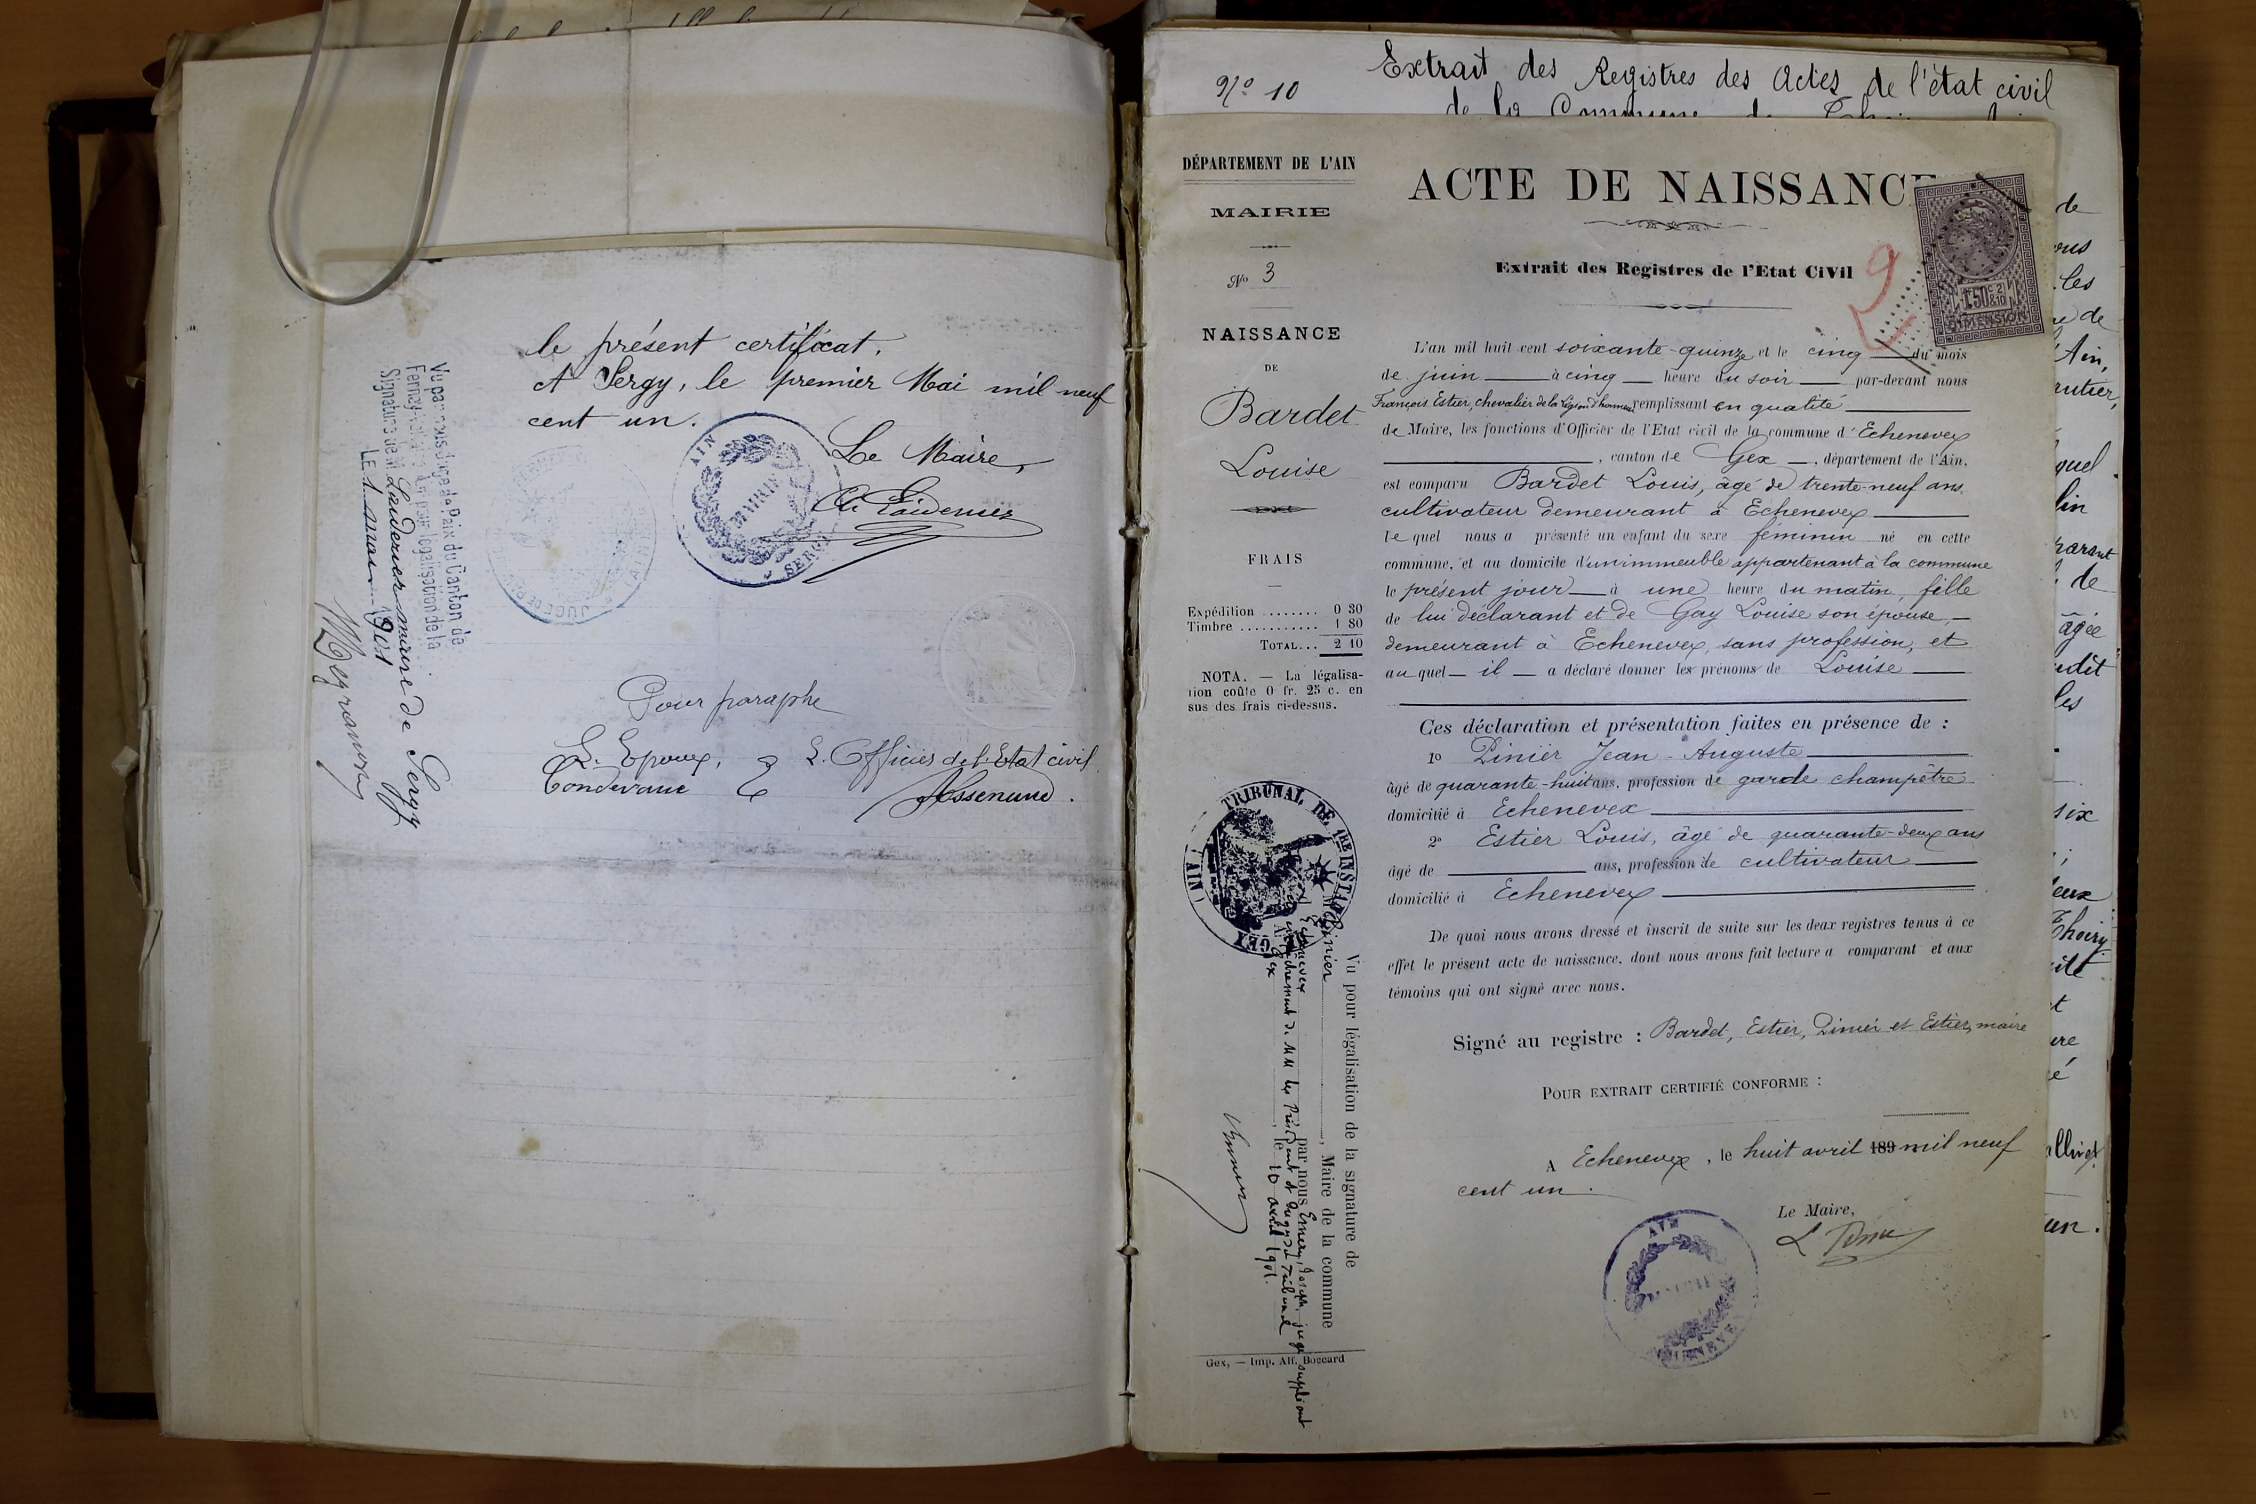 le présent certificat.
A Sergy, le premier Mai mil neuf
cent un.
Le Maire,
AIN
MAIRIE
SERGY
Vu par nous Juge de Paix du Canton de
Ferney
légalisation de la
Signature de M. Laidevier maire de Sergy
LE 1 mai 1901
Pour paraphe
L. Epoux, & L. Officier de l'Etat civil
No 10
Extrait des Registres des Actes de l'état civil
de la Commune de
DÉPARTEMENT DE L'AIN
MAIRIE
No 3
NAISSANCE
DE
Bardet
Louise
FRAIS
Expédition ........ 0 30
Timbre ........... 1 80
TOTAL... 2 10
NOTA. — La légalisa-
tion coûte 0 fr. 25 c. en
sus des frais ci-dessus.
TRIBUNAL DE 1RE INSTANCE
GEX
(AIN)
Vu pour légalisation de la signature de
M Pinier, Maire de la commune
Echenevex par nous Emery, Joseph, juge suppléant
en empêchement de MM les Président et Juges du Tribunal
A Gex, le 10 avril 1901.
Gex, — Imp. Alf. Boccard
ACTE DE NAISSANCE
Extrait des Registres de l'Etat CiVil
1F50C 2&10
DIMENSION
L'an mil huit cent soixante-quinze et le cinq du mois
de juin à cinq heure du soir par-devant nous
François Estier, chevalier de la Légion d'honneur, remplissant en qualité
de Maire, les fonctions d'Officier de l'Etat civil de la commune d'Echenevex
, canton de Gex, département de l'Ain,
est comparu Bardet Louis, âgé de trente-neuf ans,
cultivateur demeurant à Echenevex
lequel nous a présenté un enfant du sexe féminin né en cette
commune, et au domicile d'un immeuble appartenant à la commune
le présent jour à une heure du matin, fille
de lui déclarant et de Gay Louise son épouse,
demeurant à Echenevex, sans profession, et
auquel il a déclaré donner les prénoms de Louise
Ces déclaration et présentation faites en présence de :
1o Pinier Jean-Auguste
âgé de quarante-huit ans, profession de garde champêtre
domicilié à Echenevex
2o Estier Louis, âgé de quarante-deux ans
âgé de ans, profession de cultivateur
domicilié à Echenevex
De quoi nous avons dressé et inscrit de suite sur les deux registres tenus à ce
effet le présent acte de naissance, dont nous avons fait lecture a comparant et aux
témoins qui ont signé avec nous.
Signé au registre : Bardet, Estier, Pinier et Estier, maire
POUR EXTRAIT CERTIFIÉ CONFORME :
A Echenevex, le huit avril 189 mil neuf
cent un.
Le Maire,
AIN
MAIRIE